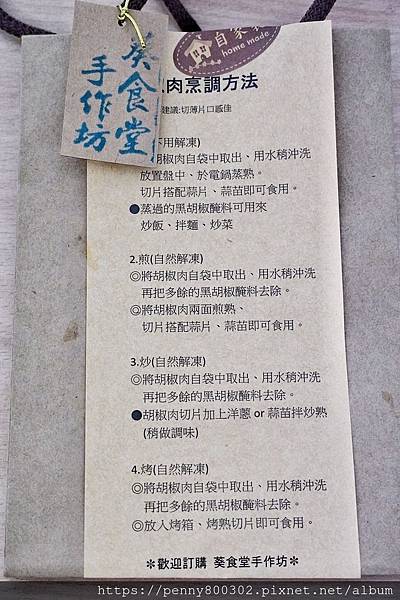 葵食堂
手作坊
自家
home made
肉烹調方法
建議:切薄片口感佳
用解凍)
胡椒肉自袋中取出、用水稍沖洗
放置盤中、於電鍋蒸熟。
切片搭配蒜片、蒜苗即可食用。
●蒸過的黑胡椒醃料可用來
炒飯、拌麵、炒菜
2.煎(自然解凍)
◎將胡椒肉自袋中取出、用水稍沖洗
再把多餘的黑胡椒醃料去除。
◎將胡椒肉兩面煎熟、
切片搭配蒜片、蒜苗即可食用。
3.炒(自然解凍)
◎將胡椒肉自袋中取出、用水稍沖洗
再把多餘的黑胡椒醃料去除。
●胡椒肉切片加上洋蔥 or 蒜苗拌炒熟
(稍做調味)
4.烤(自然解凍)
◎將胡椒肉自袋中取出、用水稍沖洗
再把多餘的黑胡椒醃料去除。
◎放入烤箱、烤熟切片即可食用。
＊歡迎訂購 葵食堂手作坊＊
https://penny800302.pixnet.net/album